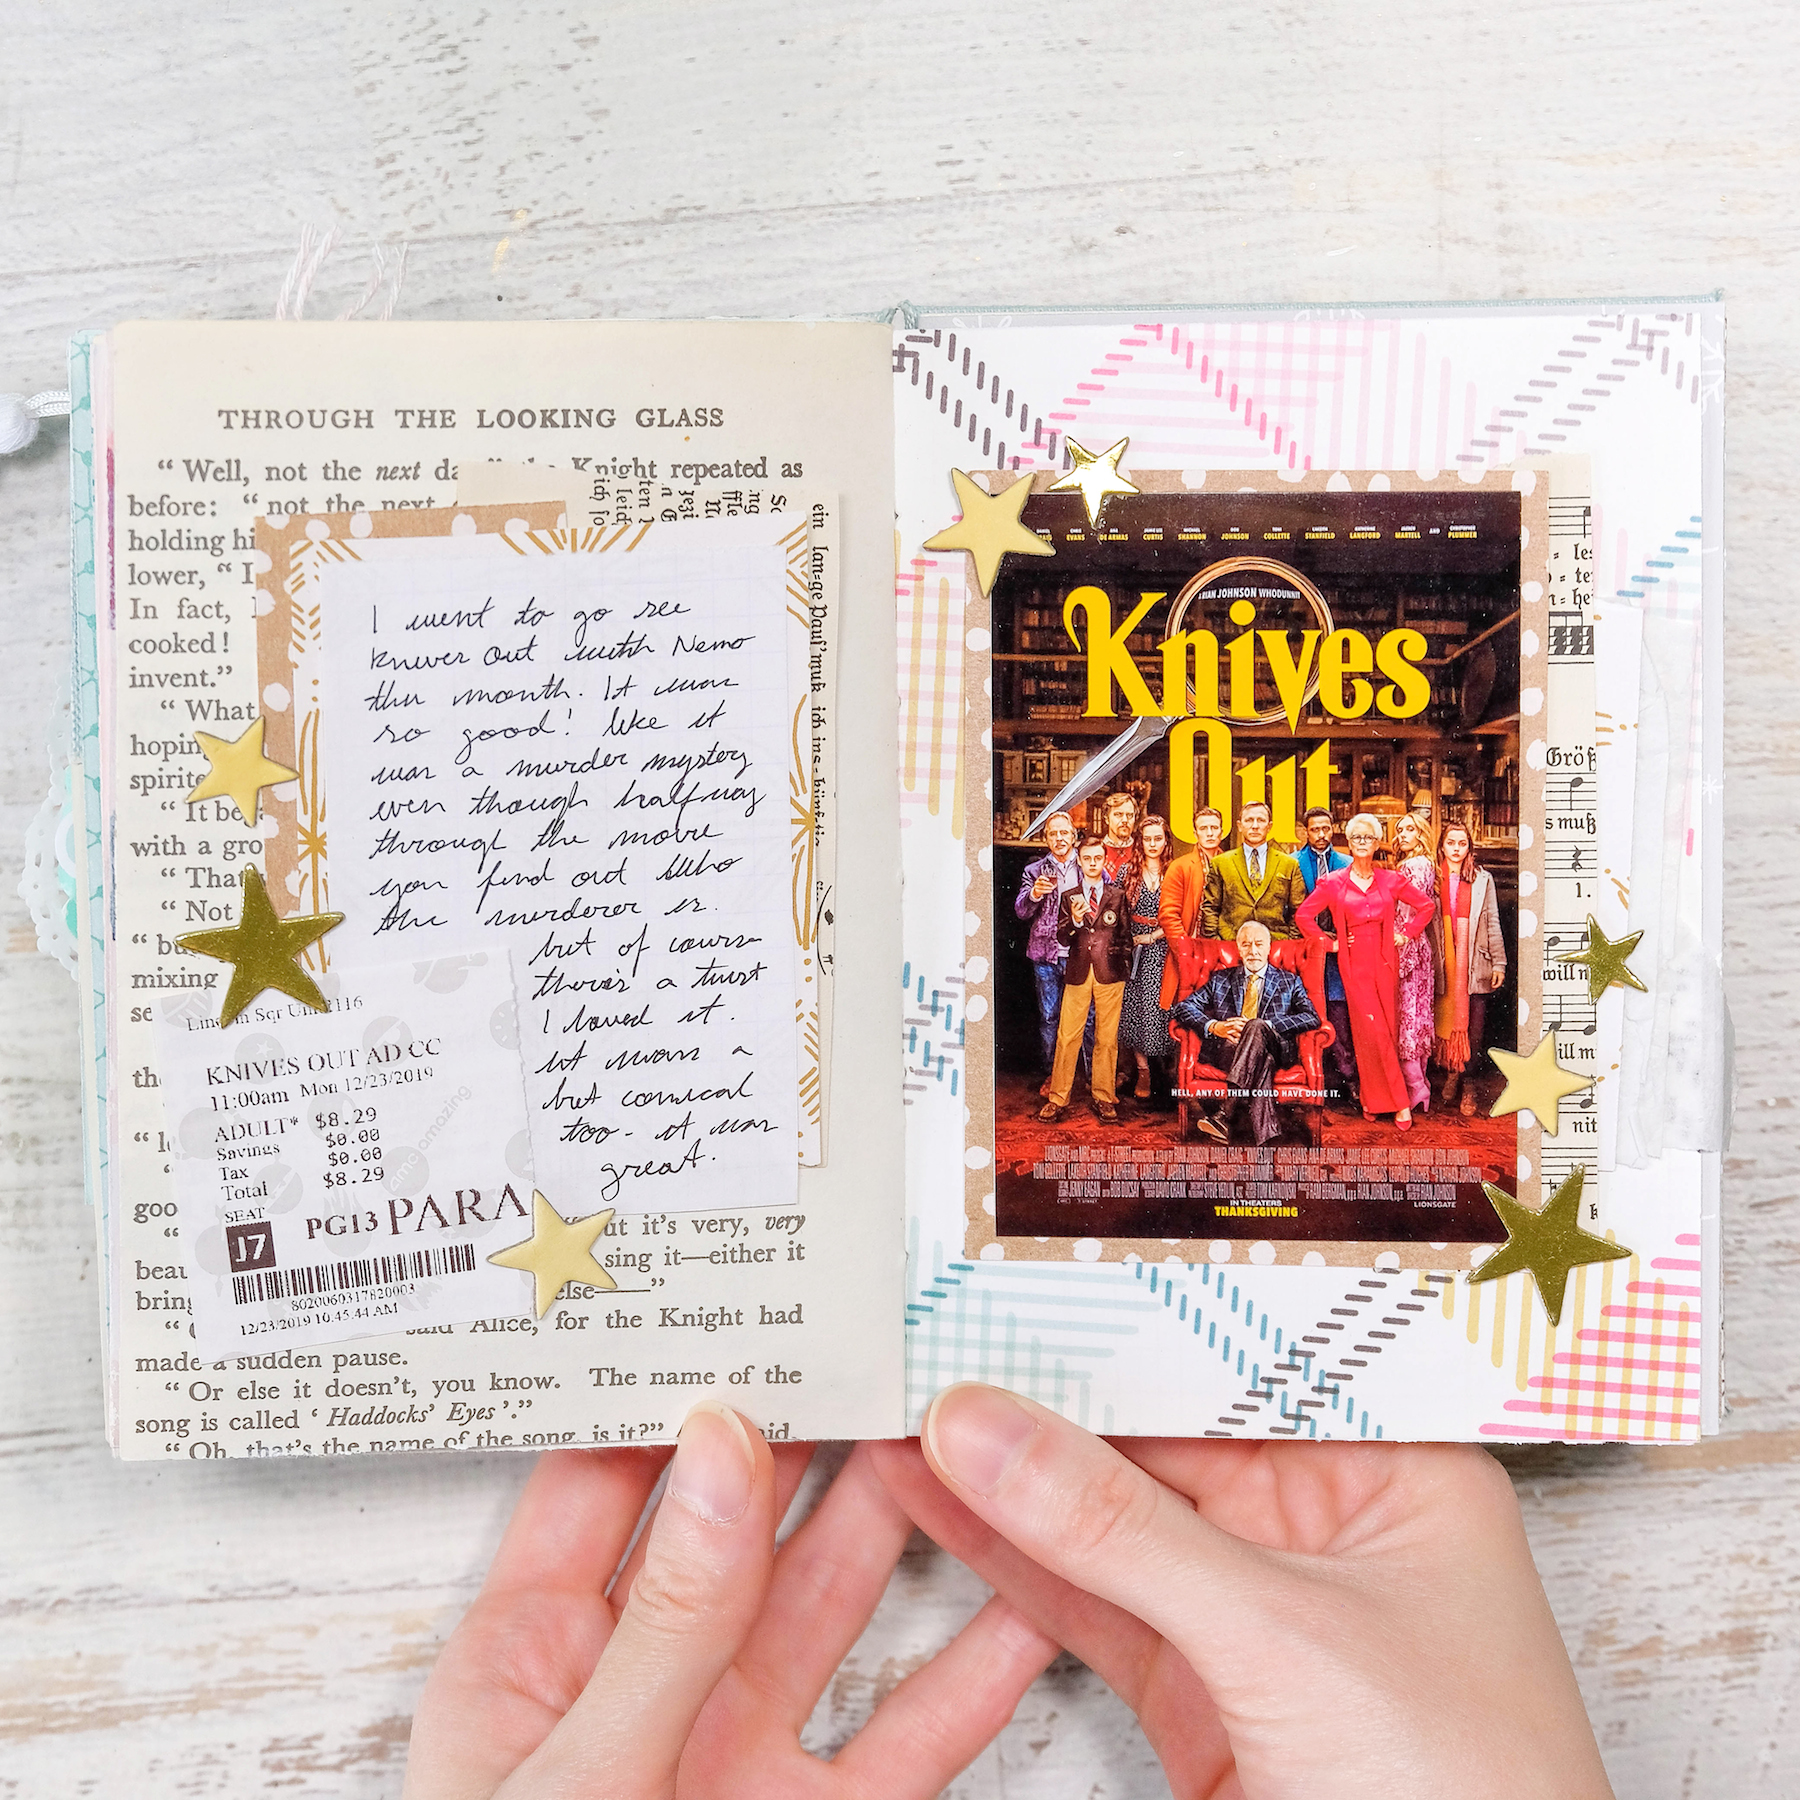 THROUGH THE LOOKING GLASS
“ Well, not the next da the Knight repeated as
before: “ not the next
holding hi
lower, “ I
In fact,
cooked!
invent.”
“ What
hopin
spirite
“ It beg
with a gro
“ That
“ Not
“ bu
mixing
se
th
“ l
“
goo
“ ut it’s very, very
beau sing it—either it
bring else——”
“ said Alice, for the Knight had
made a sudden pause.
“ Or else it doesn’t, you know. The name of the
song is called ‘ Haddocks’ Eyes ’.”
“ Oh, that’s the name of the song, is it?” A aid,
I went to go see
knives out with Nemo
this month. It was
so good! like it
was a murder mystery
even though halfway
through the movie
you find out Who
the murderer is.
but of course
there's a twist
I loved it.
it was a
bit comical
too - it was
great.
Lincoln Sqr Un 2116
KNIVES OUT AD CC
11:00am Mon 12/23/2019
ADULT* $8.29
Savings $0.00
Tax $0.00
Total $8.29
SEAT
J7 PG13 PARA
8020060317820003
12/23/2019 10.45.44 AM
amc amazing
ein lan=ge Paus' muß ich ins
CHRIS EVANS ANA DE ARMAS JAMIE LEE CURTIS MICHAEL SHANNON DON JOHNSON TONI COLLETTE LAKEITH STANFIELD KATHERINE LANGFORD JAEDEN MARTELL AND CHRISTOPHER PLUMMER
A RIAN JOHNSON WHODUNNIT
Knives
Out
HELL, ANY OF THEM COULD HAVE DONE IT.
IN THEATERS
THANKSGIVING
LIONSGATE
les
te
hei
Größ
s muß
1.
will n
ill m
nit